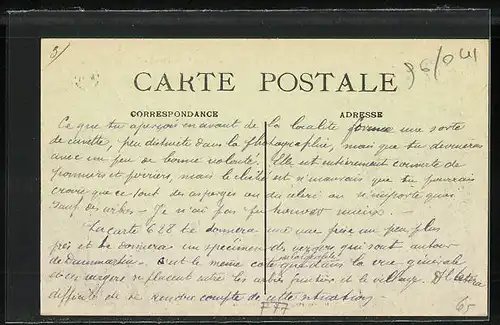 3/
96/041
CARTE POSTALE
CORRESPONDANCE
ADRESSE
Ce que tu aperçois en avant de la localité forme une sorte
de cuvette, peu distincte dans la photographie, mais que tu devineras
avec un peu de bonne volonté. Elle est entièrement couverte de
pommiers et poiriers, mais le cliché est si mauvais que tu pourrais
croire que ce sont des asperges ou du céleri ou n'importe quoi
sauf des arbres - Je n'ai pas pu trouver mieux.
La carte 628 te donnera une vue prise un peu plus
près et te donnera un spécimen des vergers qui sont autour
de Dammartin. Sur le même côté que dans la vue générale
photographié
ces vergers se placent entre les arbres fruitiers et le village. Il
difficile de se rendre compte de cette situation.
777
65